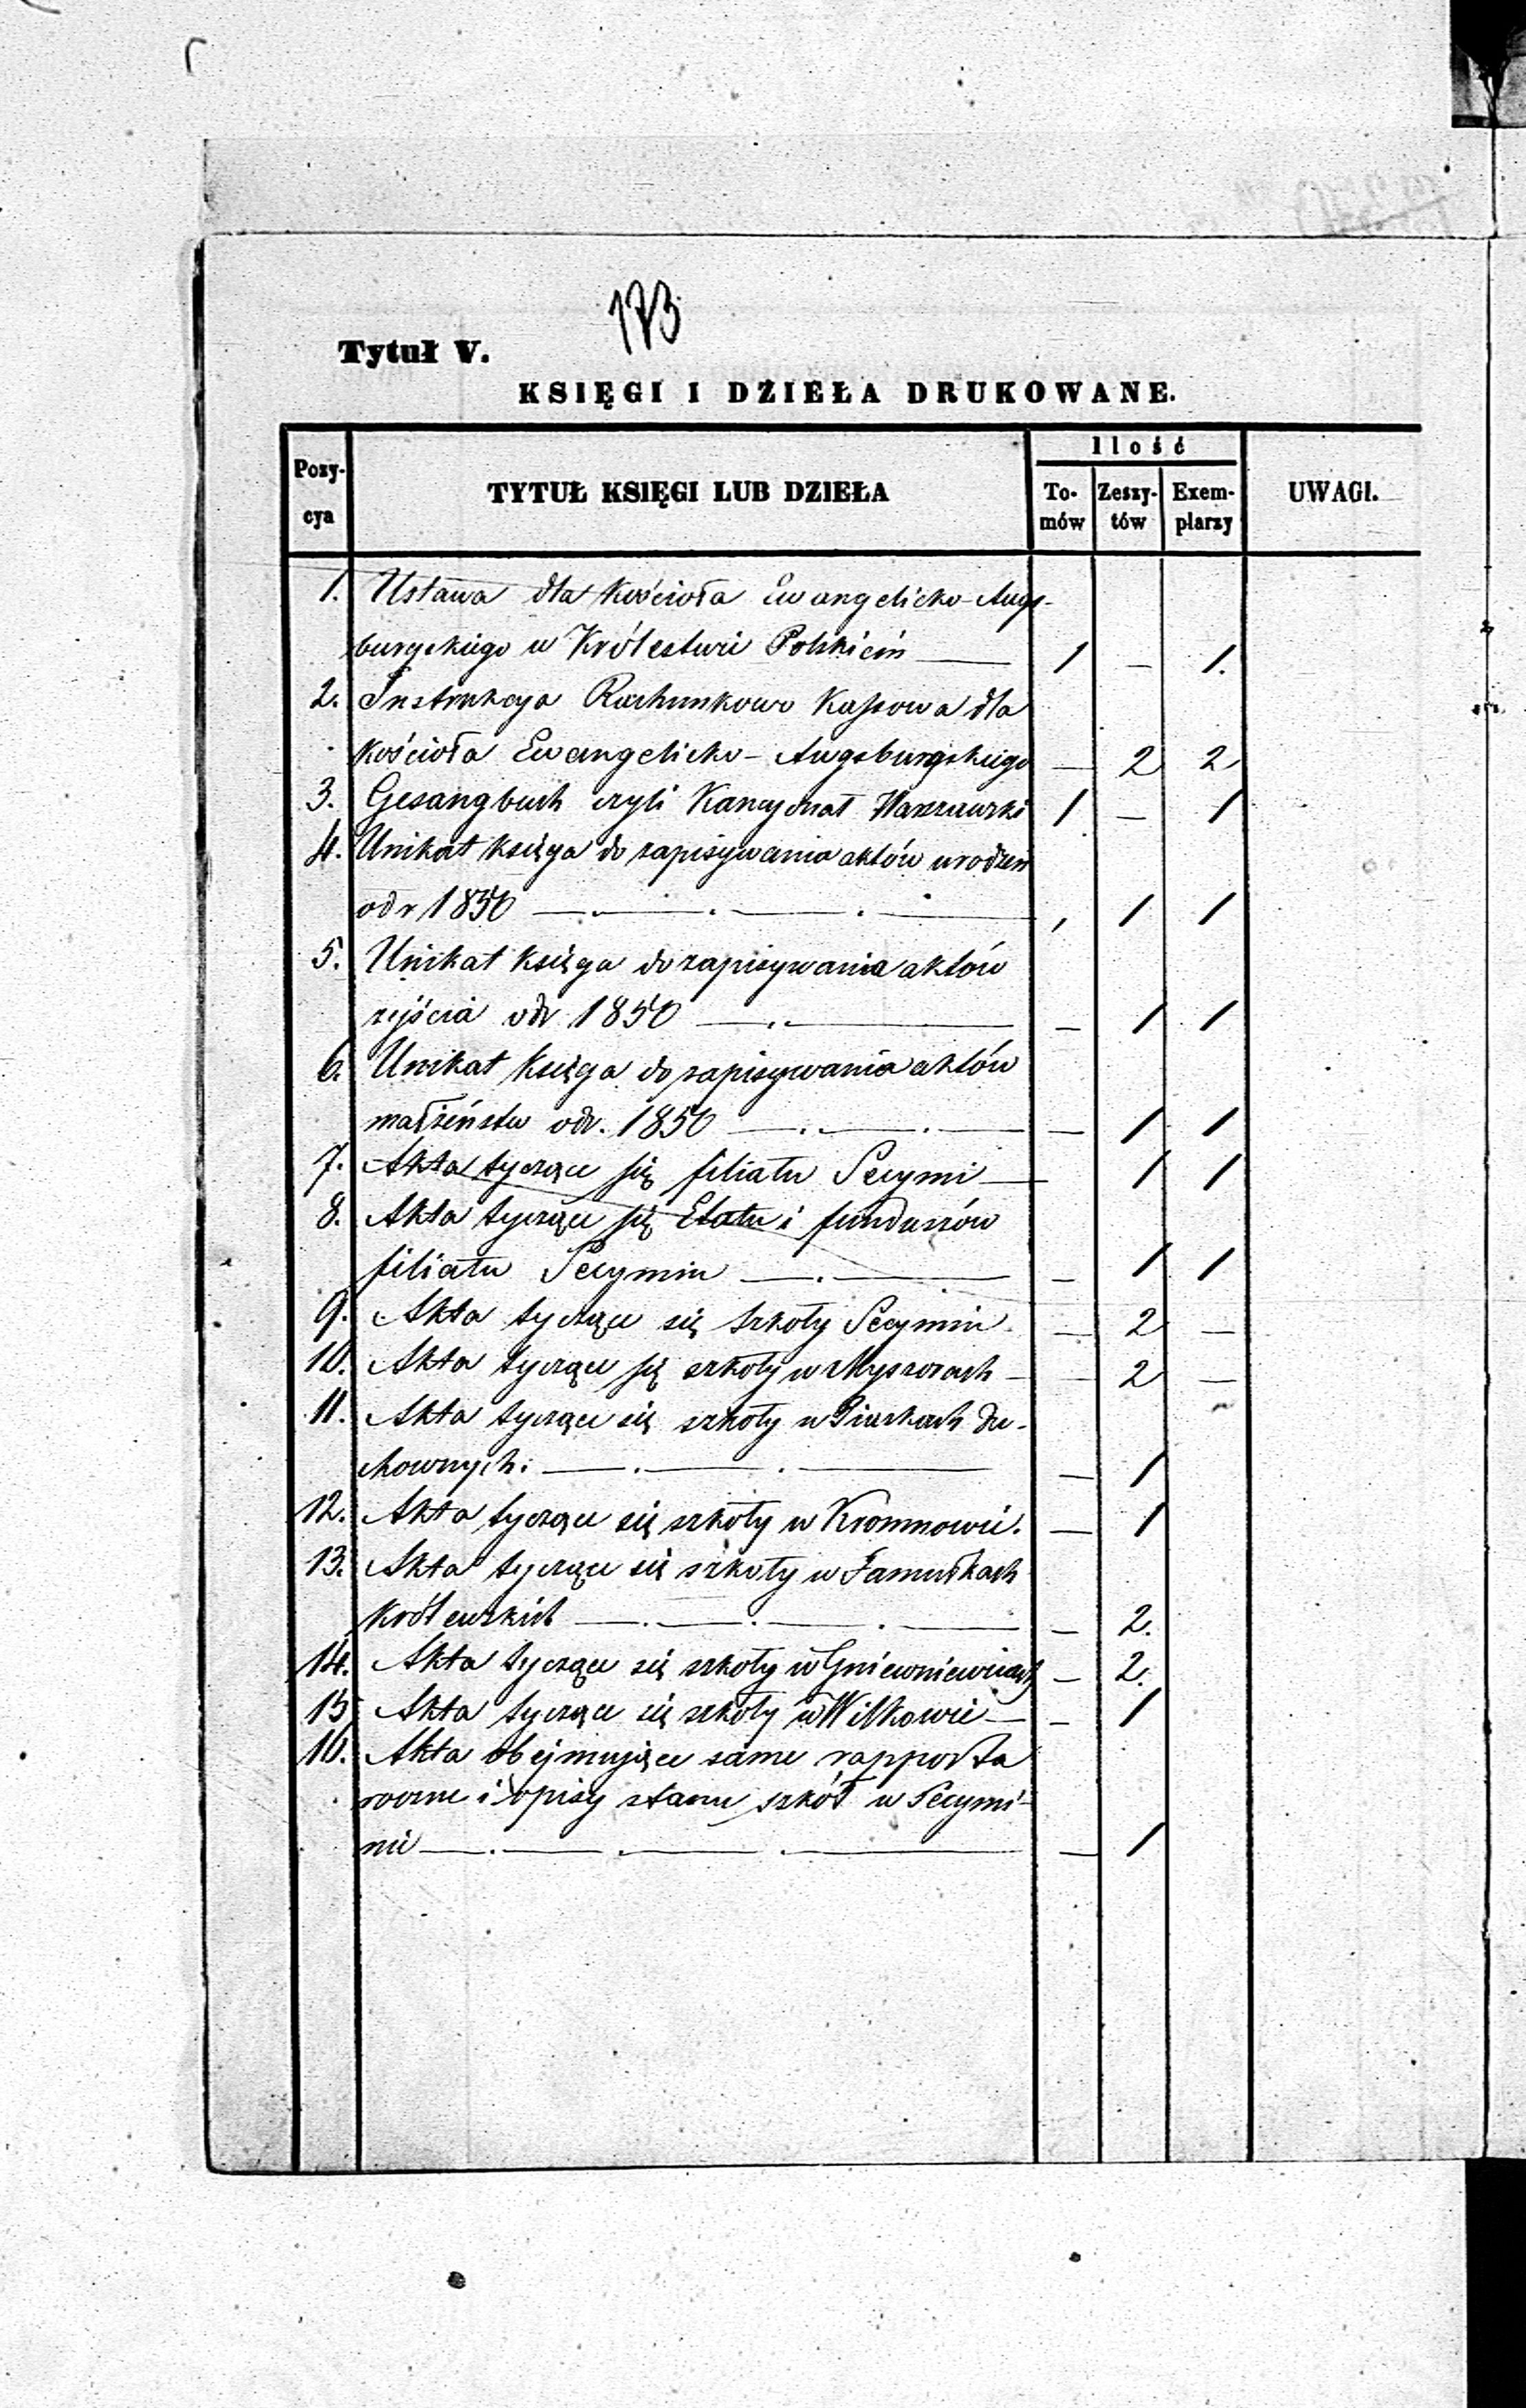 173
Tytuł V.
KSIĘGI I DZIEŁA DRUKOWANE.
Pozy-
cya
TYTUŁ KSIĘGI LUB DZIEŁA
Ilość
To-
mów
Zeszy-
tów
Exem-
plarzy
UWAGI.
1. Ustawa dla Kościoła Ewangelicko-Augs-
burgskiego w Królestwie Polskiem — 1 — 1.
2. Instrukcya Rachunkowo Kassowa dla
Kościoła Ewangelicko-Augsburgskiego — 2 2
3. Gesangbuch czyli Kancyonał Warszawski 1 — 1
4. Unikat księga do zapisywania aktów urodzeń
od r 1850 — . — . — . — , 1 1
5. Unikat księga do zapisywania aktów
zejścia od r 1850 — . — — 1 1
6. Unikat księga do zapisywania aktów
małżeństw od r. 1850 — . — . — — 1 1
7. Akta tyczące się filiału Secymi — 1 1
8. Akta tyczące się Etatu i funduszów
filiału Secymin — . — — 1 1
9. Akta tyczące się szkoły Secymin — 2 —
10. Akta tyczące się szkoły w Myszorach — — 2 —
11. Akta tyczące się szkoły w Piaskach Du-
chownych. — . — . — — 1
12. Akta tyczące się szkoły w Kromnowie. — 1
13. Akta tyczące się szkoły w Famułkach
Królewskich — . — . — . — — 2.
14. Akta tyczące się szkoły w Gniewniewicach — 2.
15 Akta tyczące się szkoły w Wilkowie — — 1
16. Akta obejmujące same rapporta
roczne i opisy stanu szkół w Secymi-
nie — . — . — . — — 1